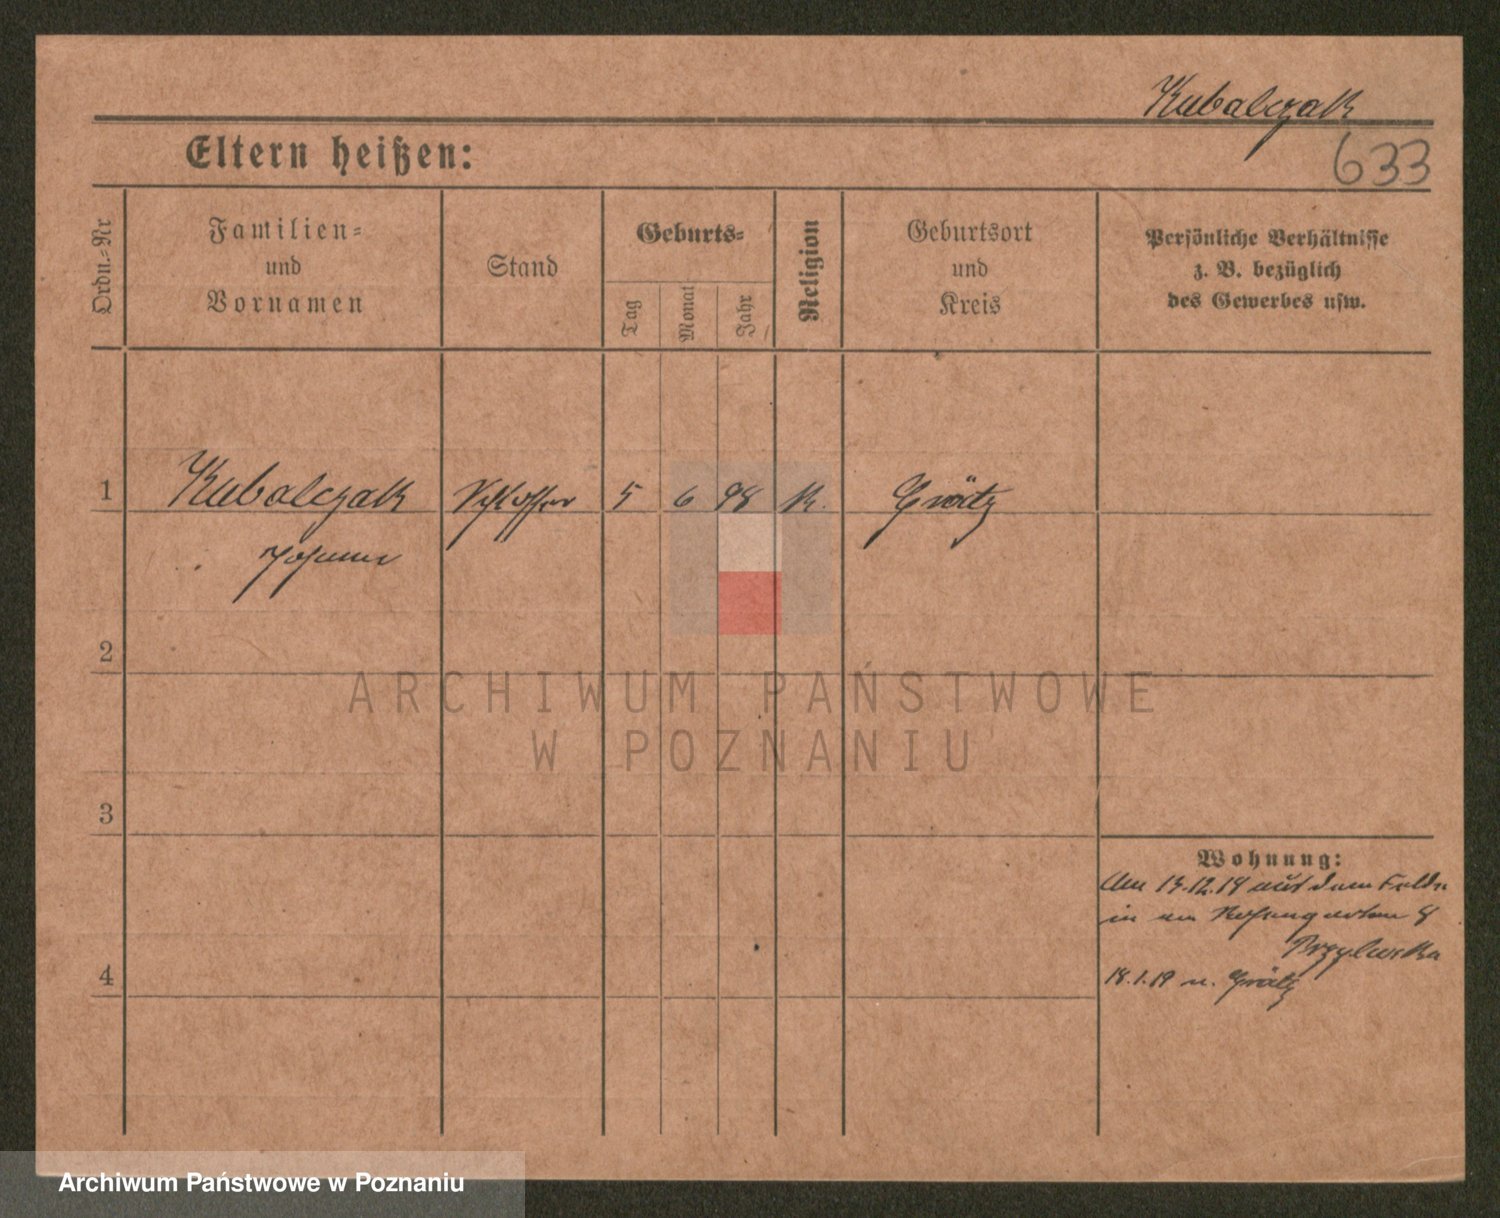 Kubalczak
633
Eltern heißen:
Ordn.-Nr
Familien-
und
Vornamen
Stand
Geburts-
Tag
Monat
Jahr
Religion
Geburtsort
und
Kreis
Persönliche Verhältnisse
z. B. bezüglich
des Gewerbes usw.
1 Kubalczak Schlosser 5 6 98 K. Grätz
Johann
2
3
4
Wohnung:
Am 13.12.18 aus dem Felde
in 8
18.1.19 n. Grätz
ARCHIWUM PAŃSTWOWE
W POZNANIU
Archiwum Państwowe w Poznaniu